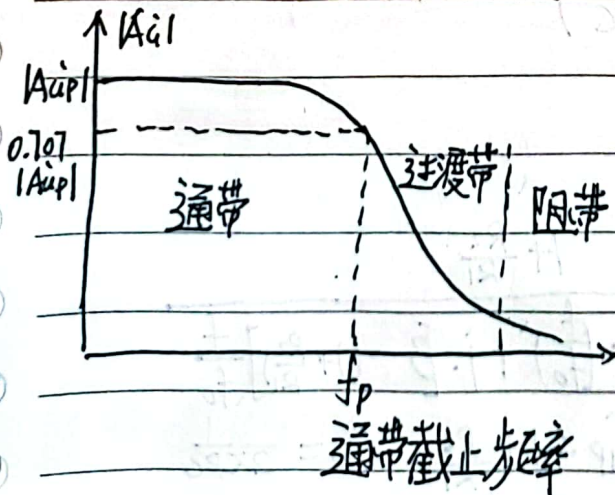 |Ȧu|
|Ȧup|
0.707
|Ȧup|
通带
过渡带
阻带
fp
通带截止频率